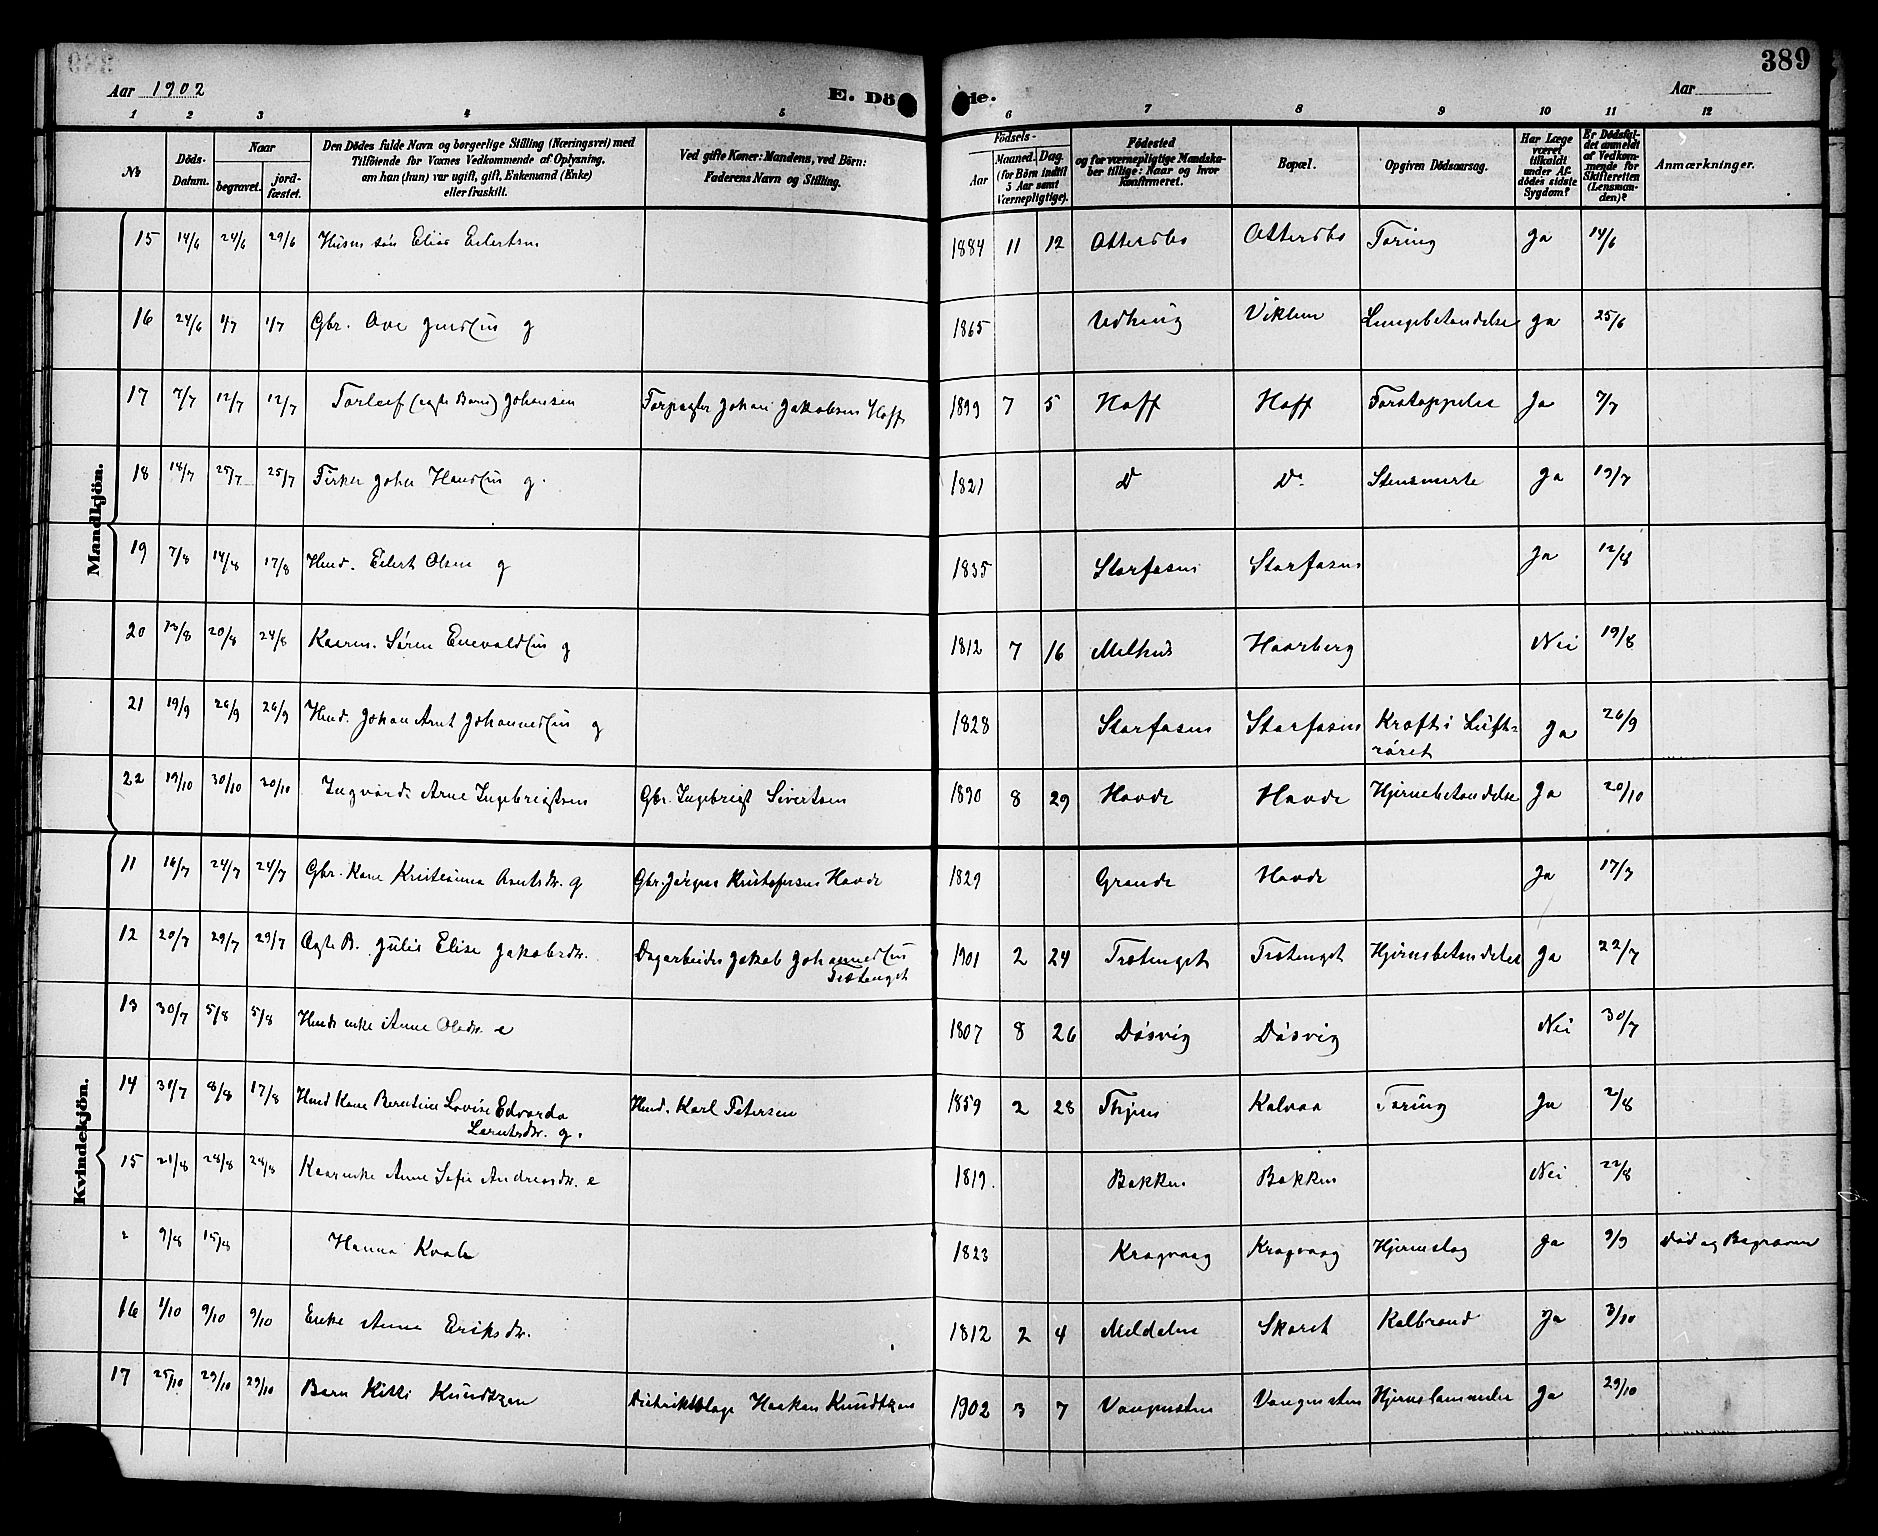 389
Aar 1902
E. Döde.
Aar
1 2 3 4 5 6 7 8 9 10 11 12
№
Döds-Datum.
Naar
begravet.
jordfæstet.
Den Dödes fulde Navn og borgerlige Stilling (Næringsvei) med
Tilföiende for Voxnes Vedkommende af Oplysning,
om han (hun) var ugift, gift, Enkemand (Enke)
eller fraskilt.
Ved gifte Koner: Mandens, ved Börn:
Faderens Navn og Stilling.
Födsels-
Aar
Maaned. Dag.
(for Börn indtil
5 Aar samt
Værnepligtige).
Födested
og for værnepligtige Mandska-
ber tillige: Naar og hvor
Konfirmeret.
Bopæl.
Opgiven Dödsaarsag.
Har Læge
været
tilkaldt
under Af-
dödes sidste
Sygdom?
Er Dödsfal-
det anmeldt
af Vedkom-
mende for
Skifteretten
(Lensman-
den)?
Anmærkninger.
Mandkjön.
15 14/6 24/6 29/6 Husm søn Elias Eilertsen 1884 11 12 Ottersbo Ottersbo Tæring Ja 14/6
16 24/6 1/7 1/7 Gbr. Ove g 1865 Viklem Lungebetændelse Ja 25/6
17 7/7 12/7 12/7 Torleif (ægte Barn) Johansen Forpagter Johan Jakobsen Hoff 1899 7 5 Hoff Hoff Forstoppelse Ja 7/7
18 18/7 25/7 25/7 Fisker Johan Hansen g. 1821 D D. Stensmerte Ja 19/7
19 7/8 14/8 17/8 Husmd. Eilert Olsen g 1835 Storfosen Storfosen Ja 12/8
20 13/8 20/8 24/8 Kaarm. Søren Enevoldsen g 1812 7 16 Melhus Haarberg Nei 19/8
21 19/9 26/9 26/9 Husmd. Johan Arnt Johannessen g 1828 Storfosen Storfosen Kræft i Luft-
røret Ja 26/9
22 19/10 30/10 30/10 Ingvard Arne Ingebrigtsen Gbr. Ingebrigt Sivertsen 1890 8 29 Hovde Hovde Hjernebetændelse Ja 20/10
Kvindekjön.
11 16/7 24/7 24/7 Gbr. Kone Kristianna Arntsdr. g Gbr. Jørgen Kristofersen Hovde 1829 Grande Hovde Ja 17/7
12 20/7 29/7 29/7 Ægte B. Julie Elise Jakobsdr. Dagarbeider Jakob Johannessen
Træthenget 1901 2 24 Træthenget Træthenget Hjernebetændelse Ja 22/7
13 30/7 5/8 5/8 Husmds enke Anne Olsdr. e 1807 8 26 Døsvig Døsvig Nei 30/7
14 31/7 8/8 17/8 Husmd Kone Berntine Lovise Edvarda
Larntsdr. g. Husmd. Karl Petersen 1859 2 28 Kalvaa Tæring Ja 2/8
15 21/8 28/8 28/8 Kaarenke Anne Sofie Andreasdr. e 1819. Bakken Bakken Nei 22/8
" 9/8 15/8 Hanna Kvale 1823 Kragvaag Kragvaag Hjerneslag Ja 9/9 Død og Begraven
16 1/10 9/10 9/10 Enke Anne Eriksdr. 1812 2 4 Meldalen Skaret Kolbrand Ja 3/10
17 25/10 29/10 29/10 Barn Kitti Kundtzen Distriktslæge Haakon Kundtzen 1902 3 7 Hjernelammelse Ja 29/10